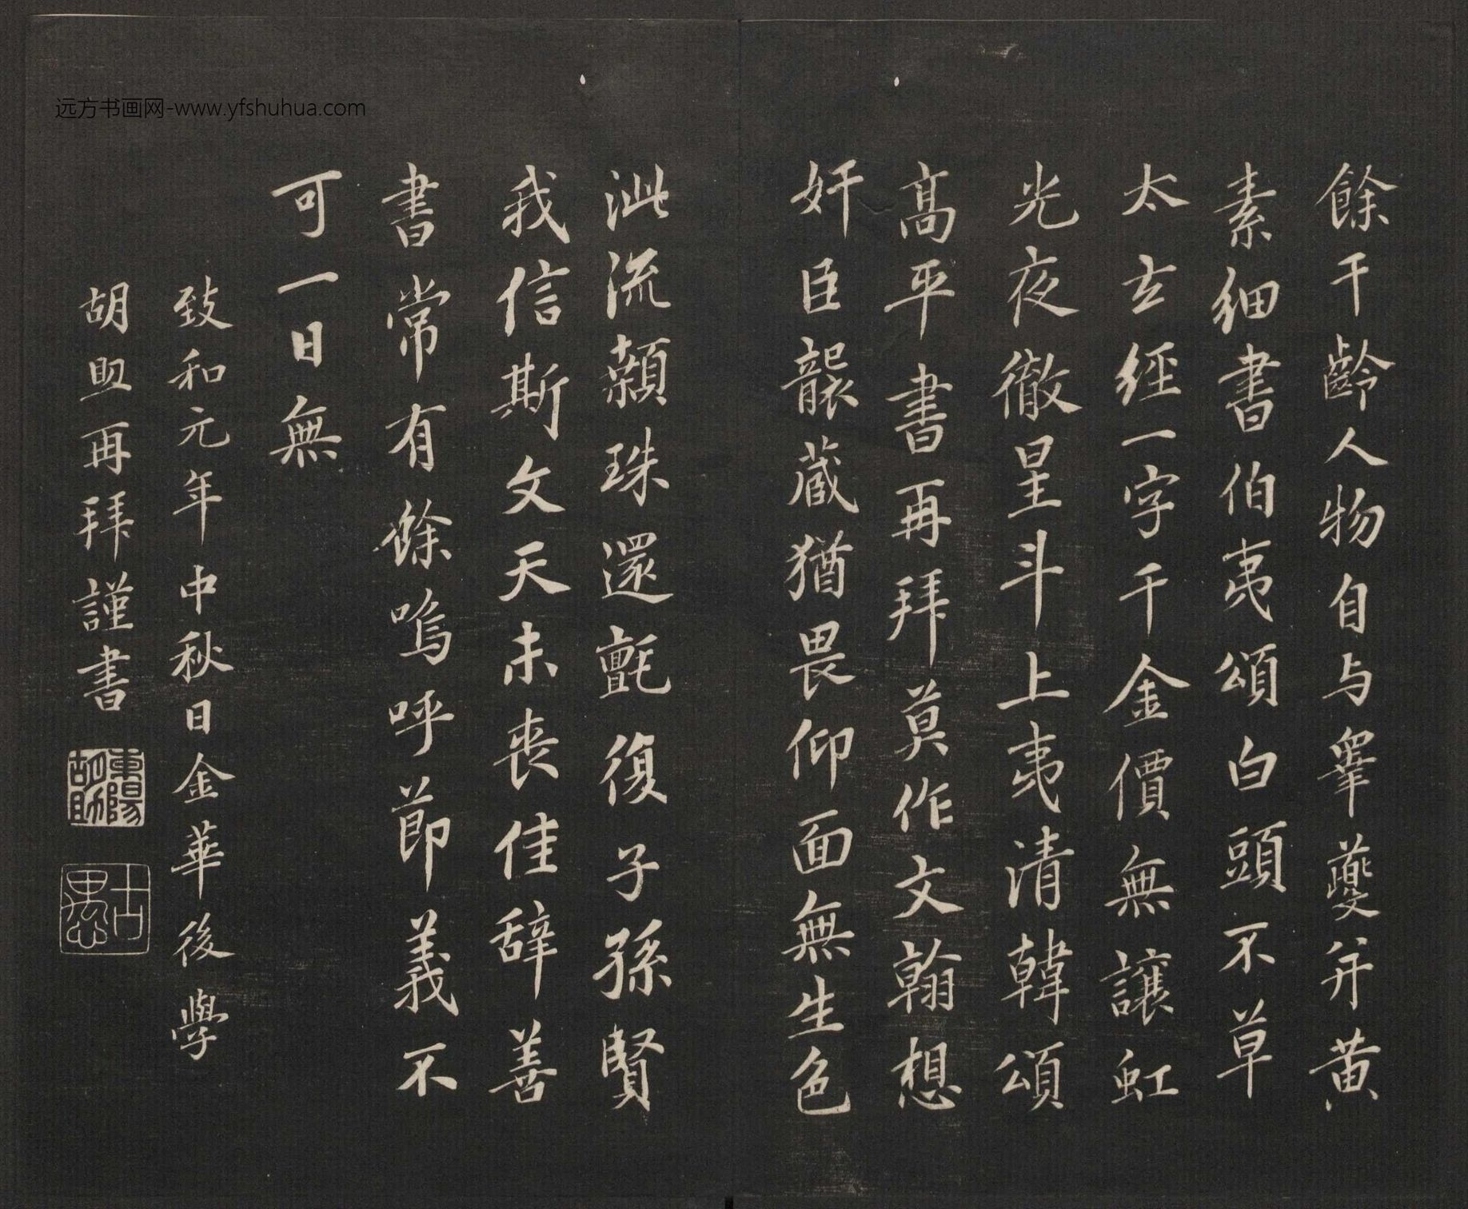 远方书画网-www.yfshuhua.com
餘千齡人物自与睾夔并黄
素細書伯夷頌白頭不草
太玄經一字千金價無讓虹
光夜徹星斗上夷清韓頌
髙平書再拜莫作文翰想
奸臣襲蔵猶畏仰面無生色
泚流顙珠還氊復子孫賢
我信斯文天未喪佳辞善
書常有餘嗚呼節義不
可一日無
致和元年中秋日金華後學
胡助再拜謹書
東陽胡助
古愚